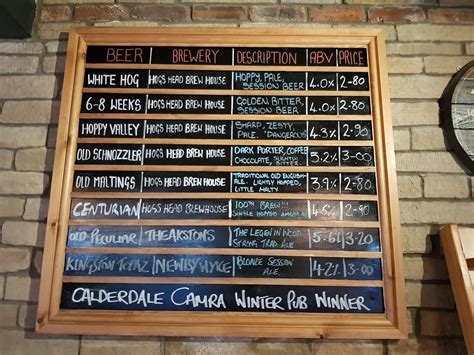 BEER BREWERY DESCRIPTION ABV PRICE
WHITE HOG HOGS HEAD BREW HOUSE HOPPY, PALE, SESSION BEER 4.0% 2-80
6-8 WEEKS HOGS HEAD BREW HOUSE GOLDEN BITTER, SESSION BEER 4.0% 2-80
HOPPY VALLEY HOGS HEAD BREW HOUSE SHARP, ZESTY, PALE. "DANGEROUS" 4.3% 2-90
OLD SCHNOZZLER HOGS HEAD BREW HOUSE DARK PORTER, COFFEE CHOCOLATE, SLIGHTLY BITTER 5.2% 3-00
OLD MALTINGS HOGS HEAD BREW HOUSE TRADITIONAL OLD ENGLISH ALE. LIGHTLY HOPPED, LITTLE MALTY 3.9% 2-80
CENTURIAN HOGS HEAD BREWHOUSE 100TH BREW!!! SINGLE HOPPED 4.6% 2-90
OLD PECULIAR THEAKSTONS THE LEGEN IN WOOD STRONG TRAD ALE 5-6% 3-20
KINGSTON TOPAZ NEWBY WYKE BLONDE SESSION ALE. 4.2% 3-00
CALDERDALE CAMRA WINTER PUB WINNER